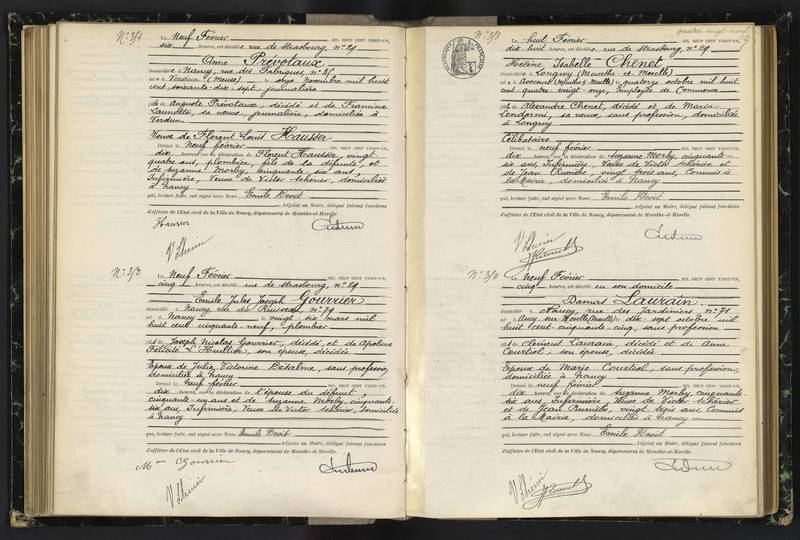 N° 3/1
Le Neuf Février MIL NEUF CENT VINGT-UN,
six heures, est décédée rue de Strasbourg, n° 29
Anne Prévotaux
domiciliée à Nancy, rue des Fabriques, n° 
née à Verdun (Meuse) le onze Novembre mil huit
cent soixante-dix-sept, journalière
fille de Auguste Prévotaux, décédé et de Francine
sa veuve, journalière, domiciliée à
Verdun.
Veuve de Florent Louis Hausser
Dressé le neuf février MIL NEUF CENT VINGT-UN,
dix heures, sur la déclaration de Florent Hausser, vingt
quatre ans, plombier, fils de la défunte, et
de Suzanne Morby, cinquante-six ans,
Infirmière, Veuve de Victor Schérier, domiciliés
à Nancy
qui, lecture faite, ont signé avec Nous Emile Devit
Adjoint au Maire, délégué faisant fonctions
d'officier de l'Etat civil de la Ville de Nancy, département de Meurthe-et-Moselle.
Hausser
N° 3/2
Le Neuf Février MIL NEUF CENT VINGT-UN,
cinq heures, est décédé rue de Strasbourg, n° 29
Emile Jules Joseph Gourrier
domicilié à Nancy rue du Ruisseau, n° 79
né à Nancy le vingt-six mars mil
huit cent cinquante neuf, plombier
fils de Joseph Nicolas Gourrier, décédé et de Apoline
Félicité L'Huillier, son épouse, décédée
Epoux de Julie Victorine sans profession,
domiciliée à Nancy
Dressé le neuf février MIL NEUF CENT VINGT-UN,
dix heures, sur la déclaration de l'épouse du défunt
cinquante-un ans et de Suzanne Morby, cinquante-
six ans, Infirmière, Veuve de Victor Schérier, domiciliés
à Nancy
qui, lecture faite, ont signé avec Nous Emile Devit
Adjoint au Maire, délégué faisant fonctions
d'officier de l'Etat civil de la Ville de Nancy, département de Meurthe-et-Moselle.
Mme Gourrier
quatre-vingt-neuf
N° 3/3
Le huit Février MIL NEUF CENT VINGT-UN,
dix huit heures, est décédée rue de Strasbourg, n° 29
Hélène Isabelle Chenet
domiciliée à Longwy (Meurthe et Moselle)
née à Avocourt (Meurthe et Moselle) le quatorze octobre mil huit
cent quatre-vingt-onze, Employée de Commerce
fille de Alexandre Chenet, décédé et de Maria
sa veuve, sans profession, domiciliée
à Longwy
Célibataire
Dressé le neuf février MIL NEUF CENT VINGT-UN,
dix heures, sur la déclaration de Suzanne Morby, cinquante-
six ans, Infirmière, Veuve de Victor Schérier et
de Jean vingt trois ans, Commis à
la Mairie, domiciliés à Nancy
qui, lecture faite, ont signé avec Nous Emile Devit
Adjoint au Maire, délégué faisant fonctions
d'officier de l'Etat civil de la Ville de Nancy, département de Meurthe-et-Moselle.
Le neuf Février MIL NEUF CENT VINGT-UN,
cinq heures, est décédé en son domicile
Damas Laurain
domicilié à Nancy, rue des Jardiniers, n° 71
né à (Moselle) le dix sept octobre mil
huit cent cinquante-cinq, sans profession
fils de Clément Laurain, décédé et de Anne
Courtiol, son épouse, décédée
Epoux de Marie Courtiol, sans profession,
domiciliée à Nancy
Dressé le neuf février MIL NEUF CENT VINGT-UN,
dix heures, sur la déclaration de Suzanne Morby, cinquante-
six ans, Infirmière, Veuve de Victor Schérier
et de Jean vingt trois ans, Commis
à la Mairie, domiciliés à Nancy
qui, lecture faite, ont signé avec Nous Emile Devit
Adjoint au Maire, délégué faisant fonctions
d'officier de l'Etat civil de la Ville de Nancy, département de Meurthe-et-Moselle.